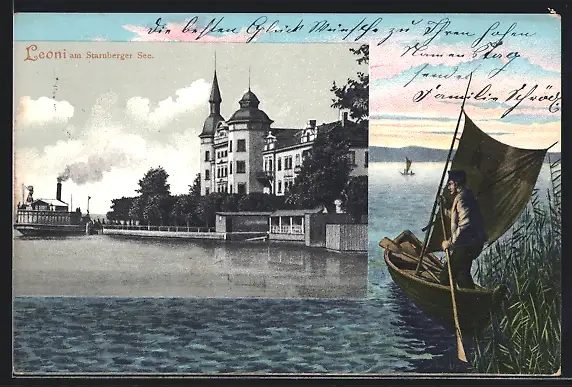 Leoni am Starnberger See.
die besten Glück Wünsche zu Ihren hohen
Namens Tag
sendet
Familie Schröd